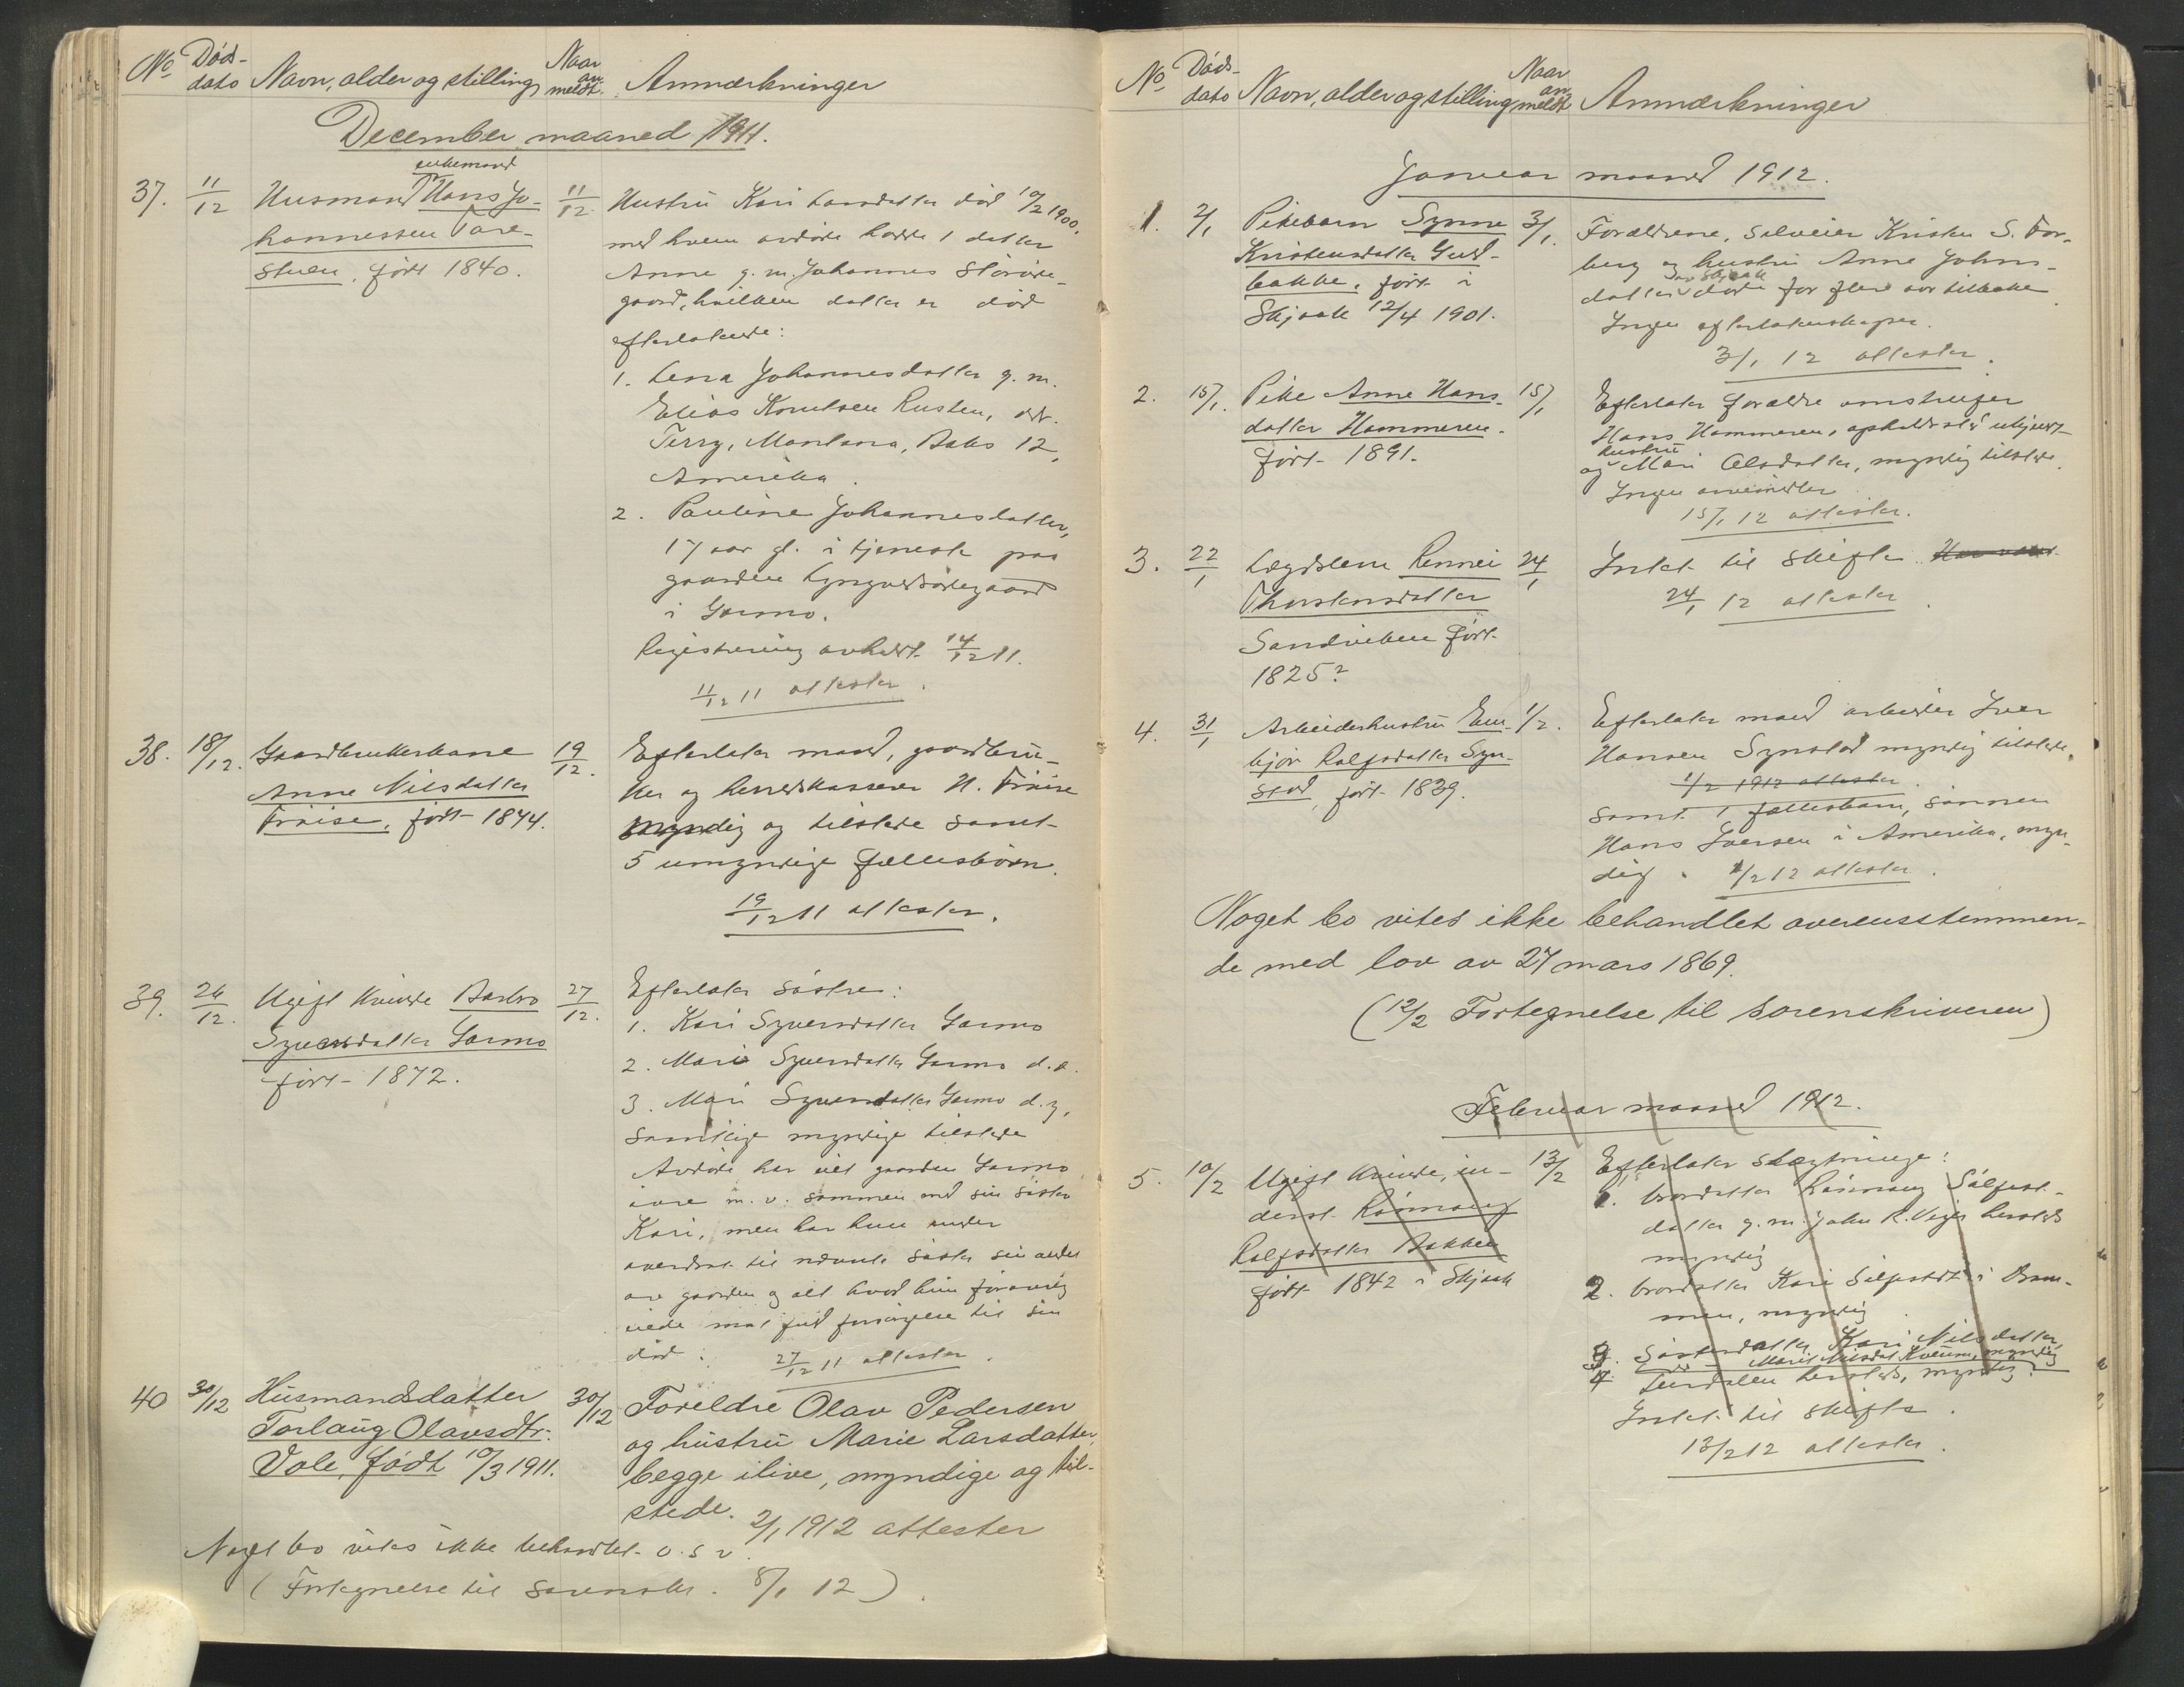 No Døds-dato Navn, alder og stilling Naar anmeldt. Anmærkninger
December maaned 1911.
37. 11/12 Husmand enkemand Hans Jo-
hannessen Tare-
stuen, født 1840.
11/12 Hustru Kari Larsdatter død 10/2 1900,
med hvem avdøde hadde 1 datter
Anne g. m. Johannes
gaard, hvilken datter er død
efterlatende:
1. Lena Johannesdatter g. m.
Elias Knutsen Rusten, adr.
Terry, Montana, Boks 12,
Amerika.
2. Pauline Johannesdatter,
17 aar gl. i tjeneste paa
gaarden
i Garmo.
Registrering avholdt 14/12 11.
11/12 11 attester.
38. 18/12. Gaardbrukerkone
Anne Nilsdatter
Frisie, født 1844.
19/12. Efterlater mand, gaardbru-
ker og herredskasserer H. Frisie
myndig og tilstede samt
5 umyndige fællesbørn.
19/12 11 attester.
39. 26/12. Ugift kvinde Barbro
Syversdatter Garmo
født 1872.
27/12. Efterlater søstre:
1. Kari Syversdatter Garmo
2. Mari Syversdatter Garmo d. e.
3. Mari Syversdatter Garmo d. y.
samtlige myndige tilstede
Avdøde har eiet gaarden Garmo
øvre m. v. sammen med sin søster
Kari, men har hun
overdrat til nævnte søster sin andel
av gaarden og alt hvad hun forøvrig
eiede mot fuld forsørgelse til sin
død. 27/12 11 attester.
40 30/12 Husmandsdatter
Torlaug Olavsdtr.
Vole, født 10/3 1911.
30/12 Foreldre Olav Pedersen
og hustru Marie Larsdatter,
begge ilive, myndige og til-
stede. 2/1 1912 attester
Noget bo vites ikke behandlet o. s. v.
(Fortegnelse til sorenskr. 8/1 12).
No Døds-dato Navn, alder og stilling Naar anmeldt Anmærkninger
Januar maaned 1912.
1. 2/1 Pikebarn Synne
Kristensdatter Gud-
bakke, født i
Skjaak 12/4 1901.
3/1. Forældrene, Kristen S. For-
berg og hustru Anne Johns-
datter av Skjaak døde for flere aar tilbake
Ingen efterlatenskaper.
3/1 12 attester.
2. 15/1. Pike Anne Hans-
datter Hammeren.
født 1891.
15/1 Efterlater forældre omstreifer
Hans Hammeren, opholdssted ukjendt
og hustru Mari Olsdatter, myndig tilstede.
Ingen arvemidler
15/1 12 attester.
3. 22/1 Lægdslem Rennei
Thorstensdatter
Sandviken født
1825?
24/1 Intet til skifte. Har
24/1 12 attester.
4. 31/1 Arbeiderhustru Em-
bjør Rolfsdatter Syn-
stad, født 1839.
1/2. Efterlater mand arbeider Iver
Hansen Synstad myndig tilstede.
1/2 1912 attester
samt 1 fællesbarn, sønnen
Hans Iversen i Amerika, myn-
dig. 1/2 12 attester.
Noget bo vites ikke behandlet overensstemmen-
de med lov av 27 mars 1869.
(12/2 Fortegnelse til sorenskriveren)
Februar maaned 1912.
5. 10/2 Ugift kvinde, in-
derst Rønnaug
Rolfsdatter Bakken
født 1842 i Skjaak
13/2 Efterlater slægtninge:
1. brordatter Rønnaug Sølfest-
datter g. m. John R. hersteds
myndig
2. brordatter Kari Sølfestdtr i Dram-
men, myndig.
3. Søsterdatter Kari Nilsdatter
Marit Nilsdat Kvium, myndig
4. hersteds, myndig.
Intet til skifte.
13/2 12 attester.